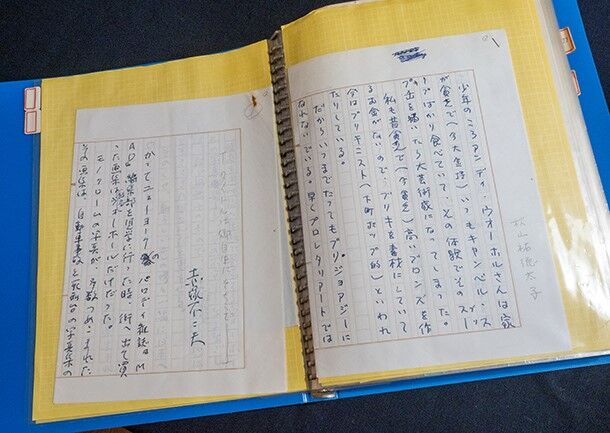 1
秋山祐徳太子
少年のころアンディ・ウォーホルさんは家
が貧乏で(今大金持)いつもキャンベル・ス
ープばかり食べていて その体験でそのスー
プ缶を描いたら大芸術家になってしまった。
私も昔貧乏で(今貧乏)高いブロンズを作
るお金がないので、ブリキを素材にしていて
今はブリキニスト(下町ポップ的)といわれ
たりしている。
だからいつまでたってもブルジョアジーに
なれないでいる。早くプロレタリアートでは
赤塚不二夫
かつてニューヨークのパロディ雑誌・M
AD編集部を見学に行った時、街へ出て買
った画集がウォーホルだけだった。
モノクロームの写真が、多数つめこまれた
その画集は、自動車事故と死刑台の写真集の